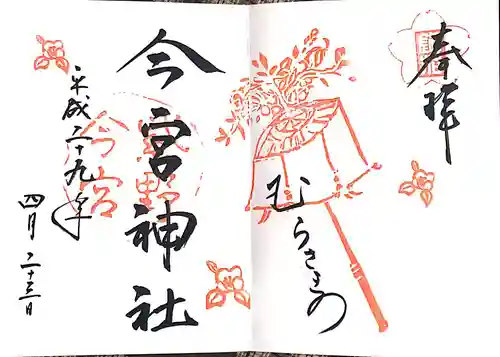 奉拝
むらさきの
今宮神社
平成二十九年
四月二十三日
今宮